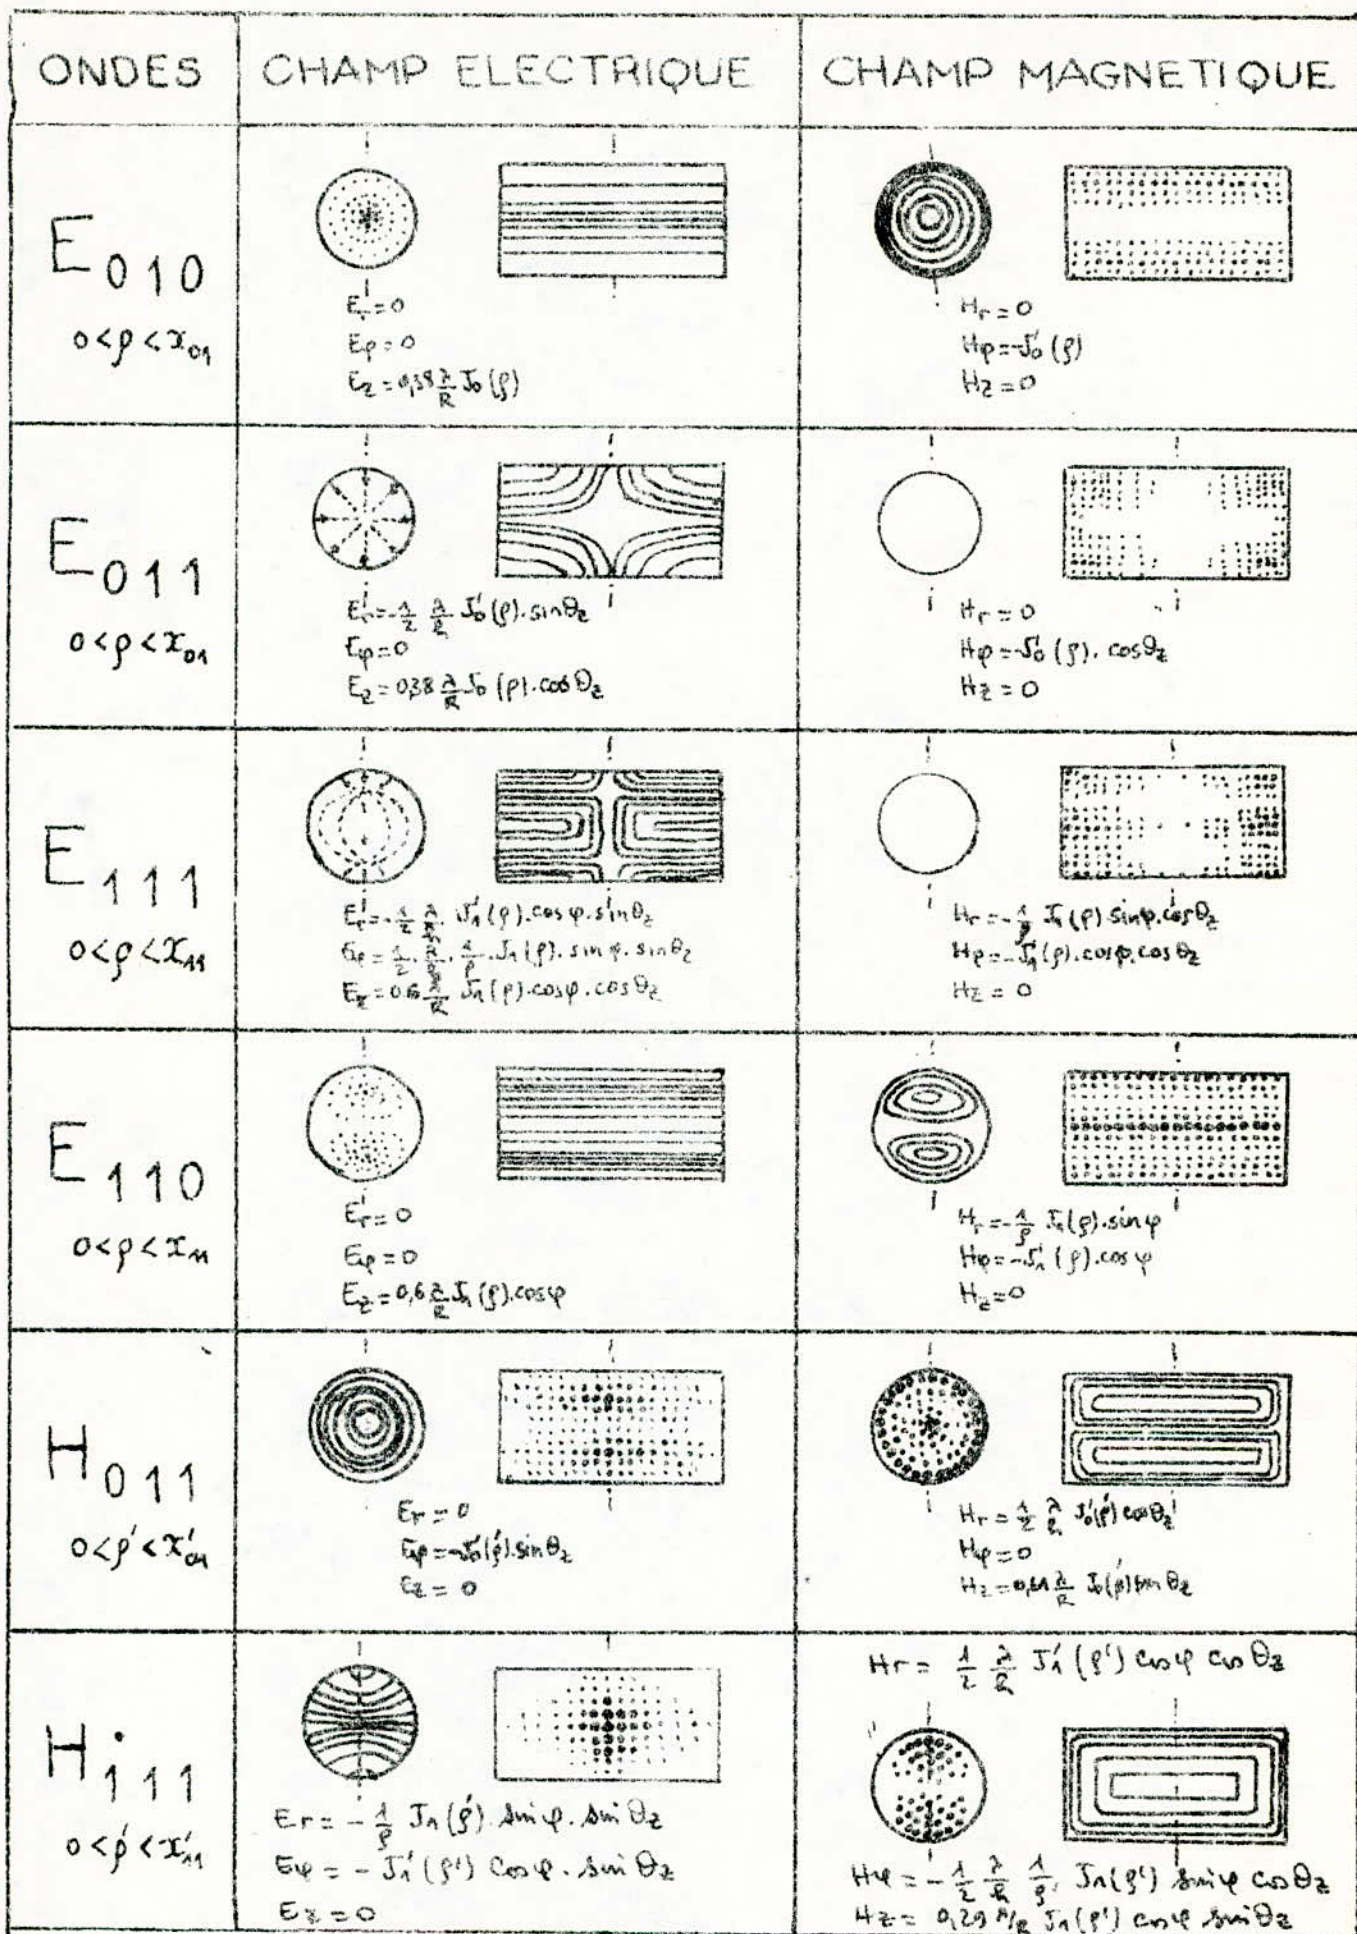 ONDES
CHAMP ELECTRIQUE
CHAMP MAGNETIQUE
E₀₁₀
0<ρ<x₀₁
E_r=0
E_φ=0
E_z=0,38 λ/R J₀(ρ)
H_r=0
H_φ=-J'₀(ρ)
H_z=0
E₀₁₁
0<ρ<x₀₁
E_r=-1/2 λ/R J'₀(ρ).sinθ_z
E_φ=0
E_z=0,38 λ/R J₀(ρ).cosθ_z
H_r=0
H_φ=-J'₀(ρ).cosθ_z
H_z=0
E₁₁₁
0<ρ<x₁₁
E_r=-1/2 λ/R J'₁(ρ).cosφ.sinθ_z
E_φ=1/2.λ/R.1/ρ.J₁(ρ).sinφ.sinθ_z
E_z=0,6 λ/R J₁(ρ).cosφ.cosθ_z
H_r=-1/ρ J₁(ρ).sinφ.cosθ_z
H_φ=-J'₁(ρ).cosφ.cosθ_z
H_z=0
E₁₁₀
0<ρ<x₁₁
E_r=0
E_φ=0
E_z=0,6 λ/R J₁(ρ).cosφ
H_r=-1/ρ J₁(ρ).sinφ
H_φ=-J'₁(ρ).cosφ
H_z=0
H₀₁₁
0<ρ'<x'₀₁
E_r=0
E_φ=-J'₀(ρ').sinθ_z
E_z=0
H_r=1/2 λ/R J'₀(ρ')cosθ_z
H_φ=0
H_z=0,61 λ/R J₀(ρ')sinθ_z
H₁₁₁
0<ρ'<x'₁₁
E_r=-1/ρ J₁(ρ').sinφ.sinθ_z
E_φ=-J'₁(ρ') cosφ.sinθ_z
E_z=0
H_r=1/2 λ/R J'₁(ρ') cosφ cosθ_z
H_φ=-1/2 λ/R 1/ρ' J₁(ρ') sinφ cosθ_z
H_z=0,29 λ/R J₁(ρ') cosφ sinθ_z